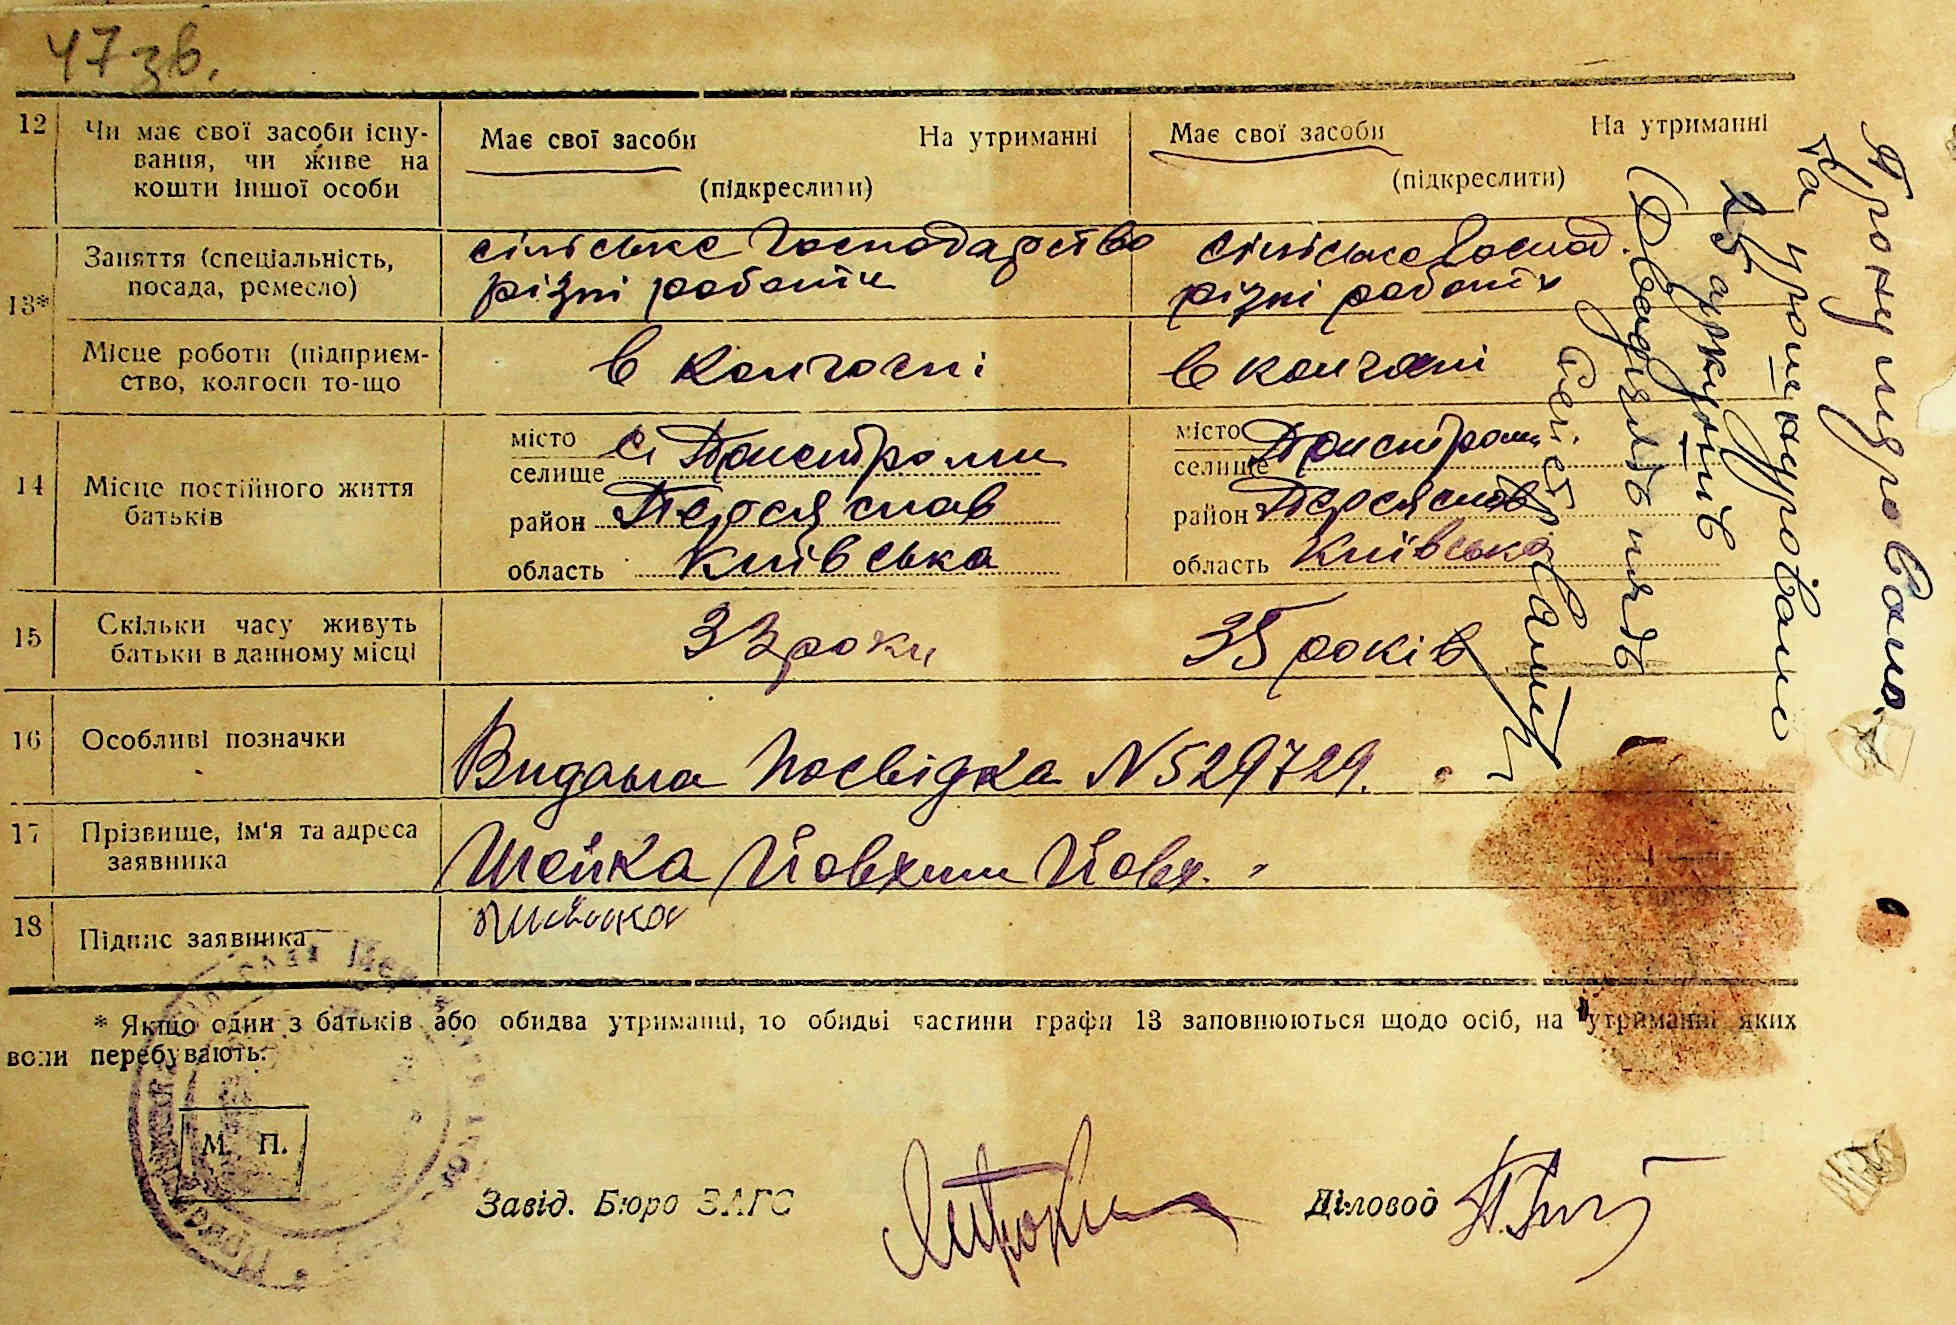 47 зв.
12 Чи має свої засоби існу-
вання, чи живе на
кошти іншої особи
Має свої засоби На утриманні
(підкреслити)
Має свої засоби На утриманні
(підкреслити)
13*
Заняття (спеціальність,
посада, ремесло)
сільське господарство
різні роботи
сільське господ.
різні роботи
Місце роботи (підприєм-
ство, колгосп то-що
в колгоспі
в колгоспі
14 Місце постійного життя
батьків
місто
селище с.
район Переяслав
область Київська
місто
селище
район Переяслав
область Київська
15 Скільки часу живуть
батьки в данному місці
33 роки
35 років
16 Особливі позначки
Видана посвідка N 529729.
17 Прізвище, ім'я та адреса
заявника
Шейка Йовхим Йовх.
18 Підпис заявника
* Якщо один з батьків або обидва утриманці, то обидві частини графи 13 заповнюються щодо осіб, на утриманні яких
вони перебувають.
М. П.
Завід. Бюро ЗАГС
Діловод
Пронумеровано
та прошнуровано
25 аркушів
(Двадцять пять